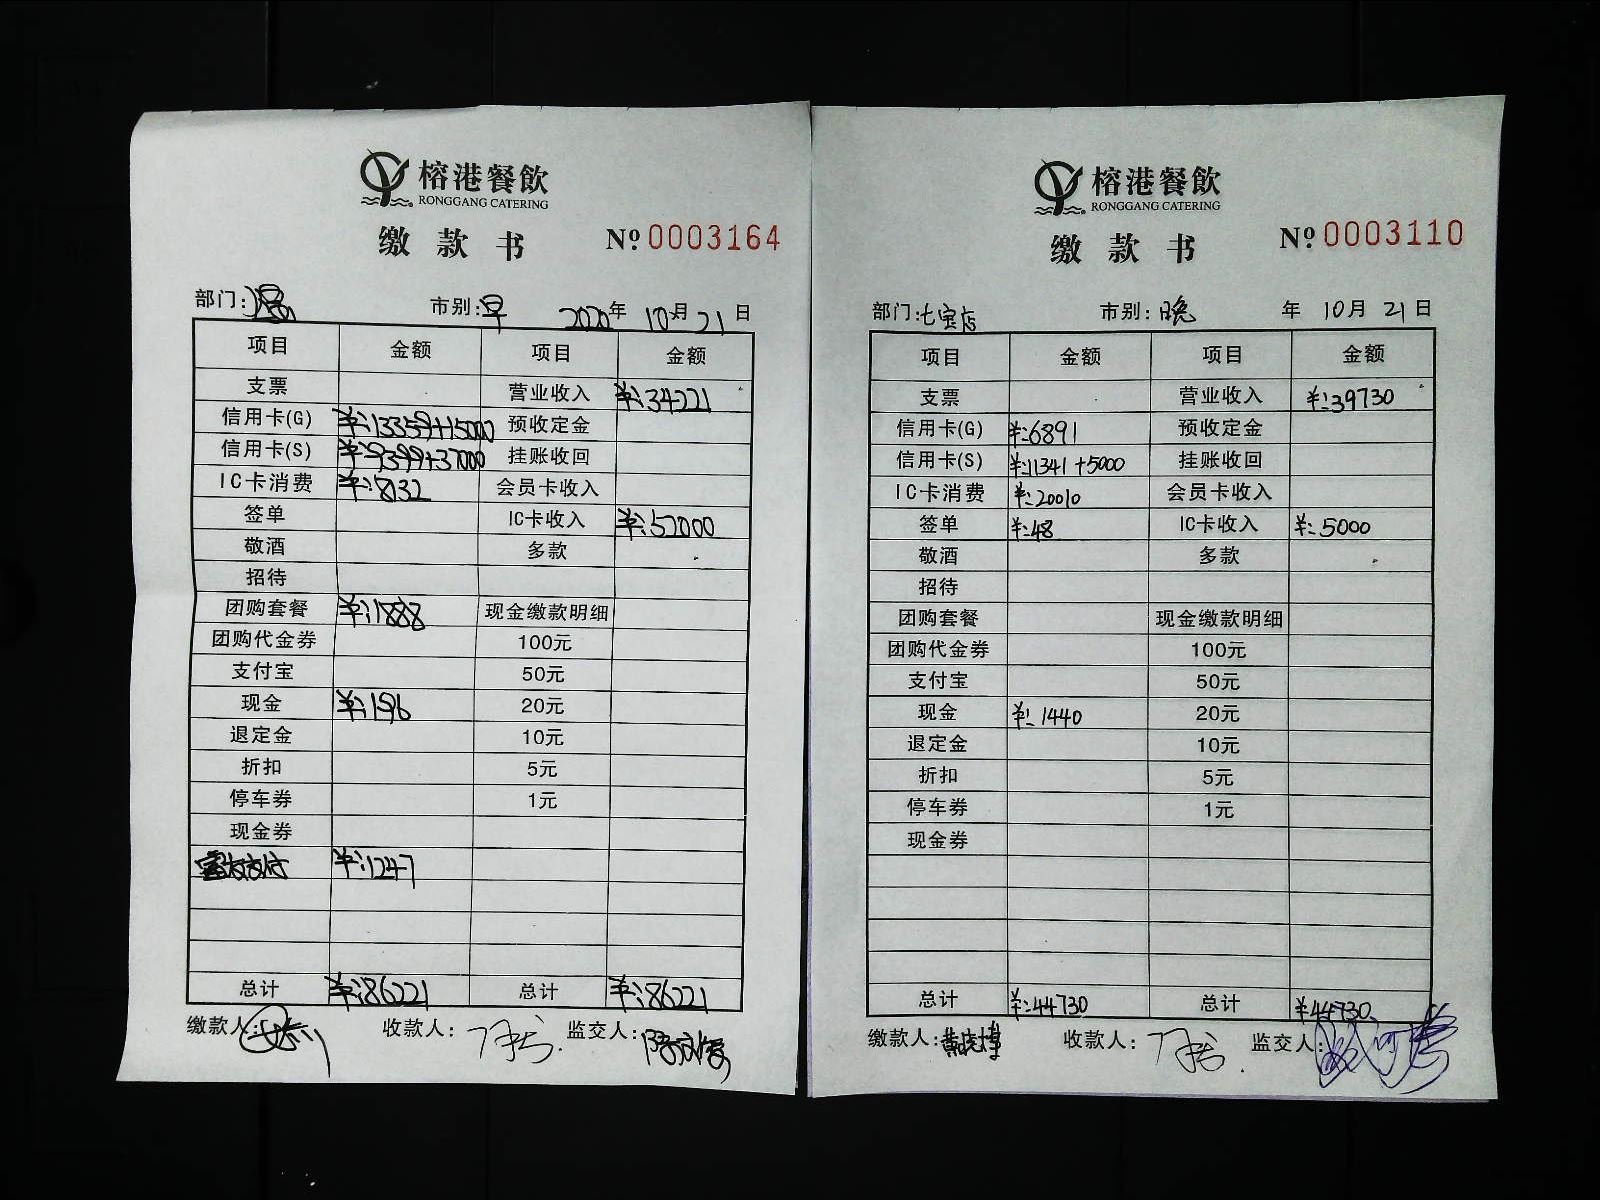 榕港餐飲
RONGGANG CATERING
缴款书
Nº 0003164
部门: 市别:早 2020年10月21日
项目 金额 项目 金额
支票 营业收入 ¥:34221
信用卡(G) ¥:13359+15000 预收定金
信用卡(S) ¥:9399+37000 挂账收回
IC卡消费 ¥:8132 会员卡收入
签单 IC卡收入 ¥:52000
敬酒 多款
招待
团购套餐 ¥:1888 现金缴款明细
团购代金券 100元
支付宝 50元
现金 ¥:196 20元
退定金 10元
折扣 5元
停车券 1元
现金券
支付 ¥:1247
总计 ¥:86221 总计 ¥:86221
缴款人: 收款人: 监交人:
榕港餐飲
RONGGANG CATERING
缴款书
Nº 0003110
部门:七宝店 市别:晚 年10月21日
项目 金额 项目 金额
支票 营业收入 ¥:39730
信用卡(G) ¥:6891 预收定金
信用卡(S) ¥:11341+5000 挂账收回
IC卡消费 ¥:20010 会员卡收入
签单 ¥:48 IC卡收入 ¥:5000
敬酒 多款
招待
团购套餐 现金缴款明细
团购代金券 100元
支付宝 50元
现金 ¥:1440 20元
退定金 10元
折扣 5元
停车券 1元
现金券
总计 ¥:44730 总计 ¥:44730
缴款人: 收款人: 监交人: